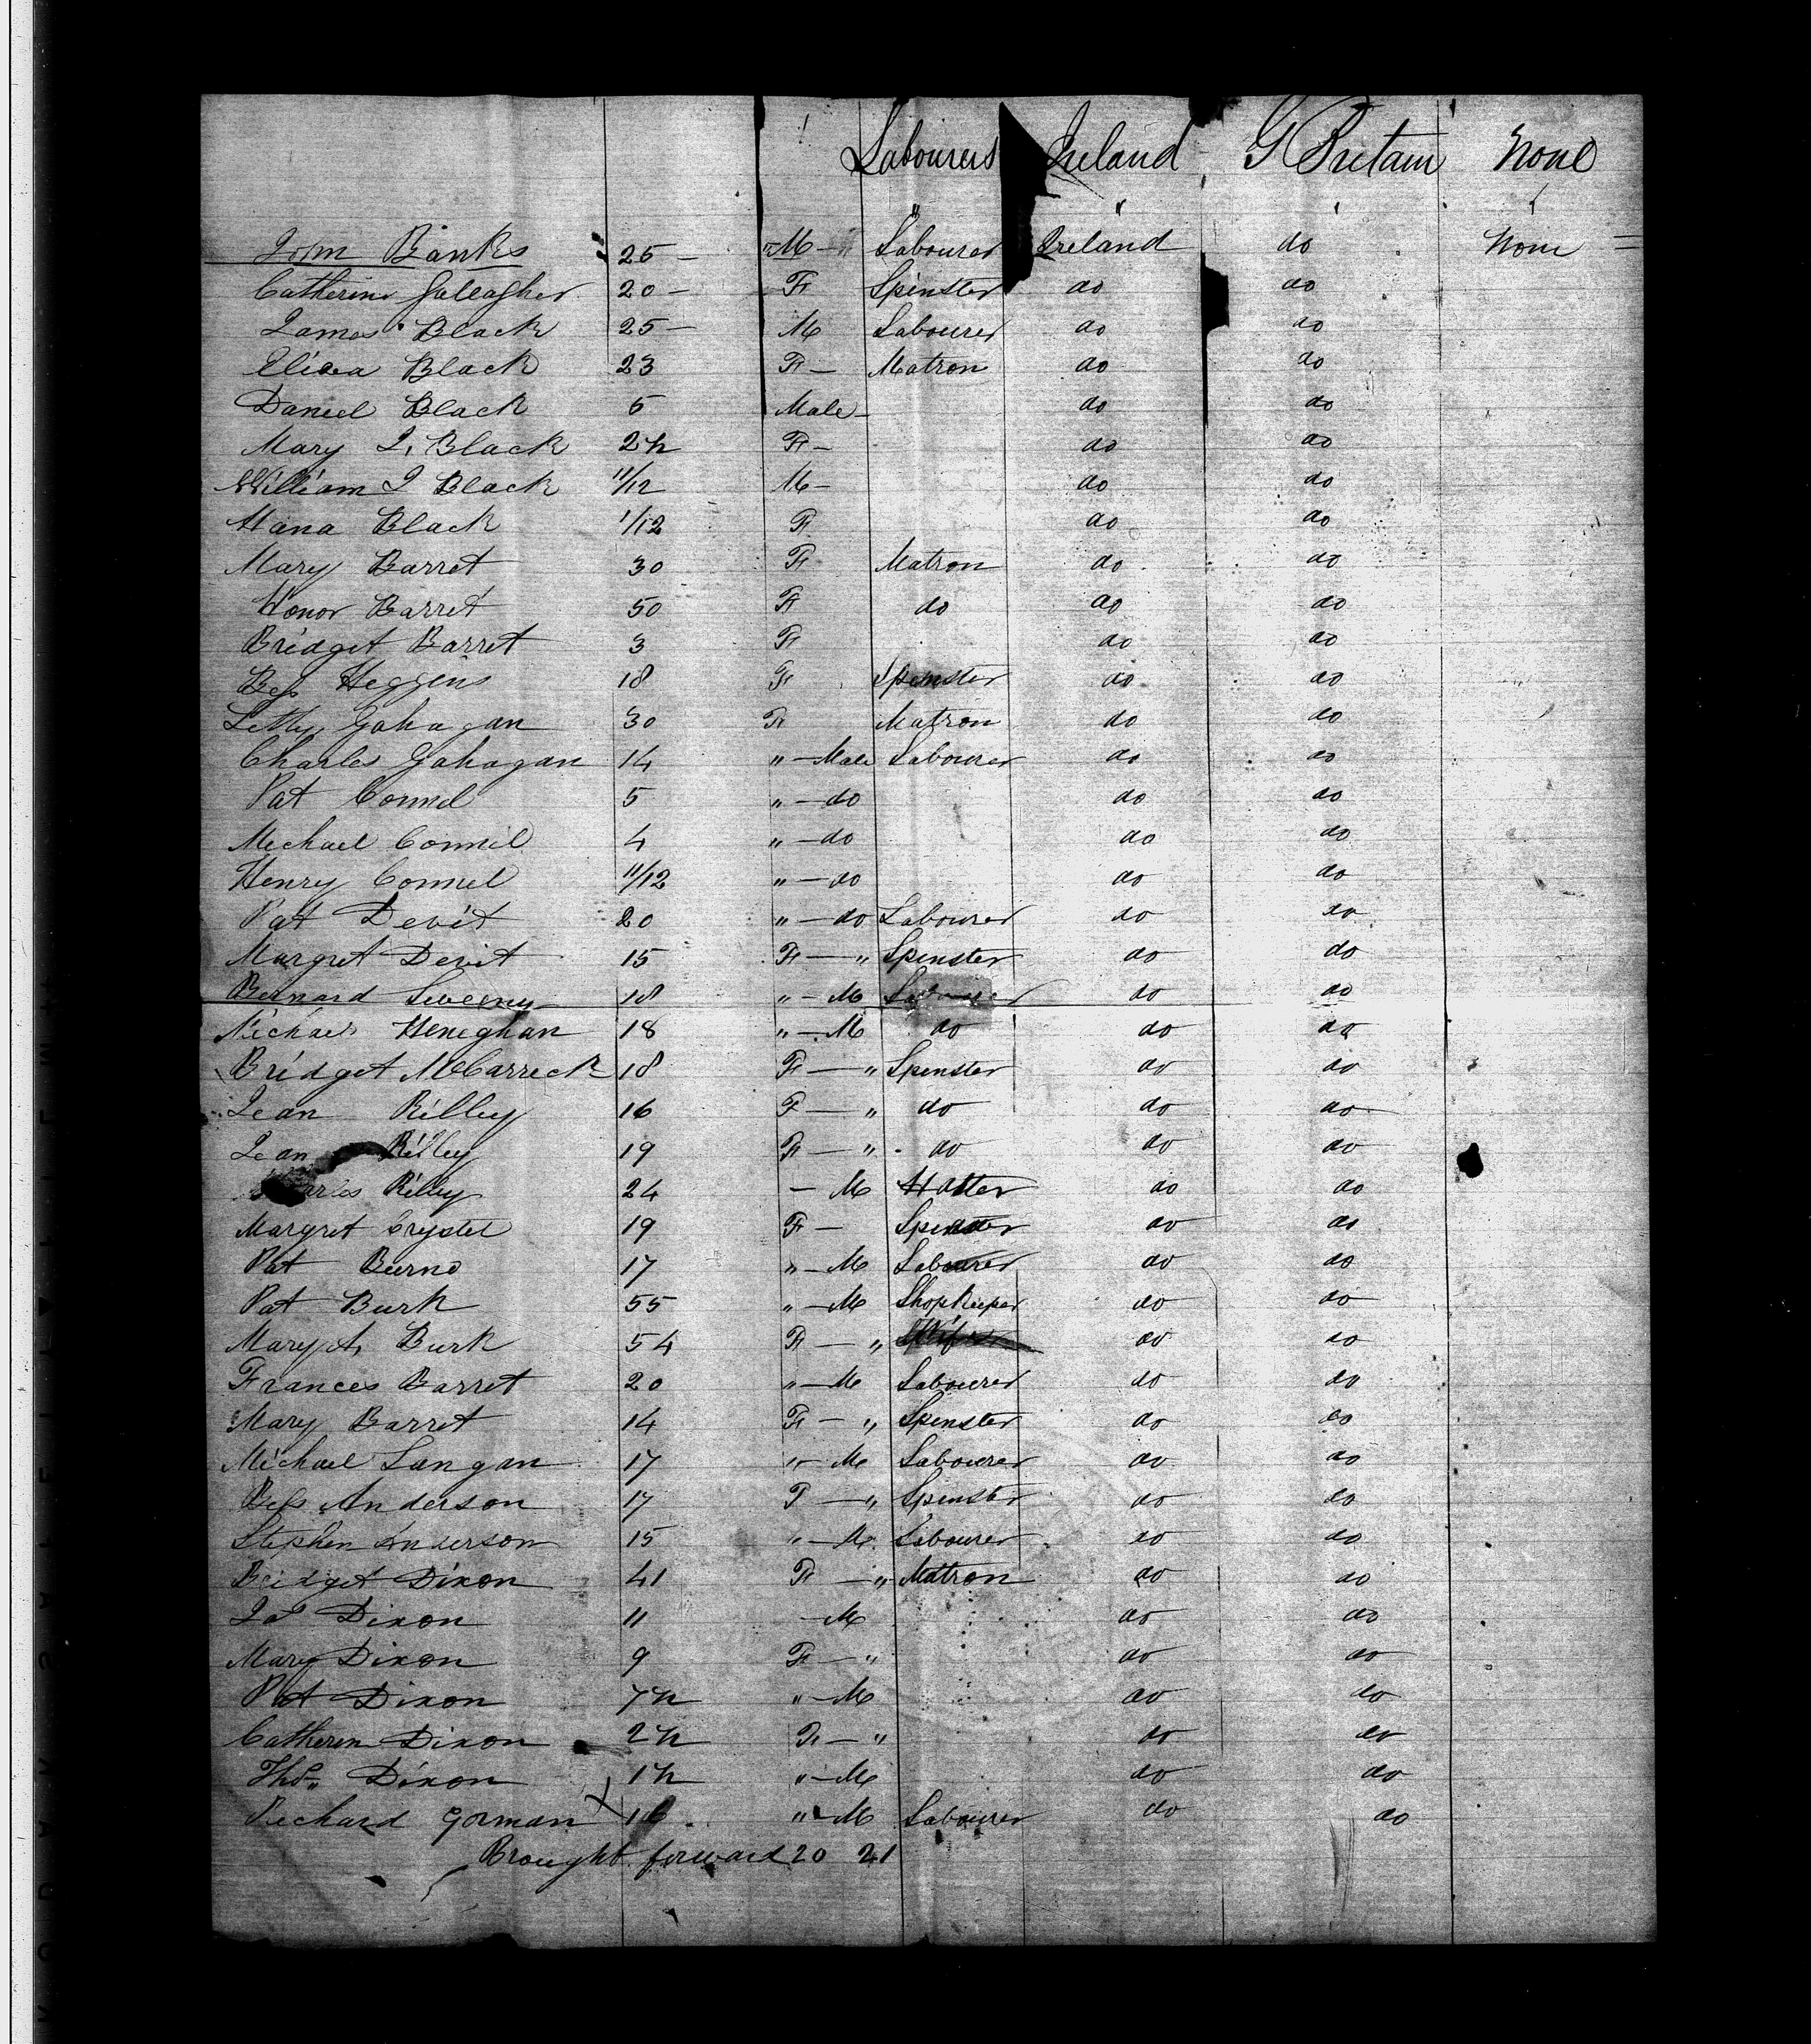 Labourers Ireland G Britain None
" " ' '
John Banks 25 — " M — " Labourer Ireland do None =
Catherine Gallagher 20 — F Spinster do do
James Black 25 — M Labourer do do
Eliza Black 23 F — Matron do do
Daniel Black 5 Male — do do
Mary J. Black 2½ F — do do
William J Black 11/12 M — do do
Hana Black 1/12 F do do
Mary Barret 30 F Matron do do
Honor Barret 50 F do do do
Bridget Barret 3 F do do
Bess Heggins 18 F Spinster do do
Letty Gahagan 30 F Matron do do
Charles Gahagan 14 " — Male Labourer do do
Pat Connel 5 " — do do do
Mechael Connil 4 " — do do do
Henry Connel 11/12 " — do do do
Pat Devit 20 " — do Labourer do do
Margret Devit 15 F — " Spinster do do
Bernard Sweeny 18 " — M Labourer do do
Michael Heneghan 18 " — M do do do
Bridget McCarreck 18 F — " Spinster do do
Jean Rilley 16 F — " do do do
Jean Rilley 19 F — " do do do
Charles Rilley 24 — M Hatter do do
Margret Crystel 19 F — Spinster do do
Pat Burns 17 " — M Labourer do do
Pat Burk 55 " — M Shopkeeper do do
Mary A. Burk 54 F — " Wife do do
Frances Barret 20 " — M Labourer do do
Mary Barret 14 F — " Spinster do do
Michael Langan 17 " — M Labourer do do
Bess Anderson 17 F — " Spinster do do
Stephen Anderson 15 " — M. Labourer do do
Bridget Dixon 41 F — " Matron do do
Jas Dixon 11 — M do do
Mary Dixon 9 F — " do do
Pat Dixon 7½ " — M do do
Catheren Dixon 2½ F — " do do
Thos. Dixon 1½ " — M do do
Richard Gorman X 16 " — M Labourer do do
Brought forward 20 21